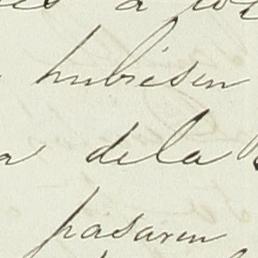 à
hubiesen
a dela
pasaren